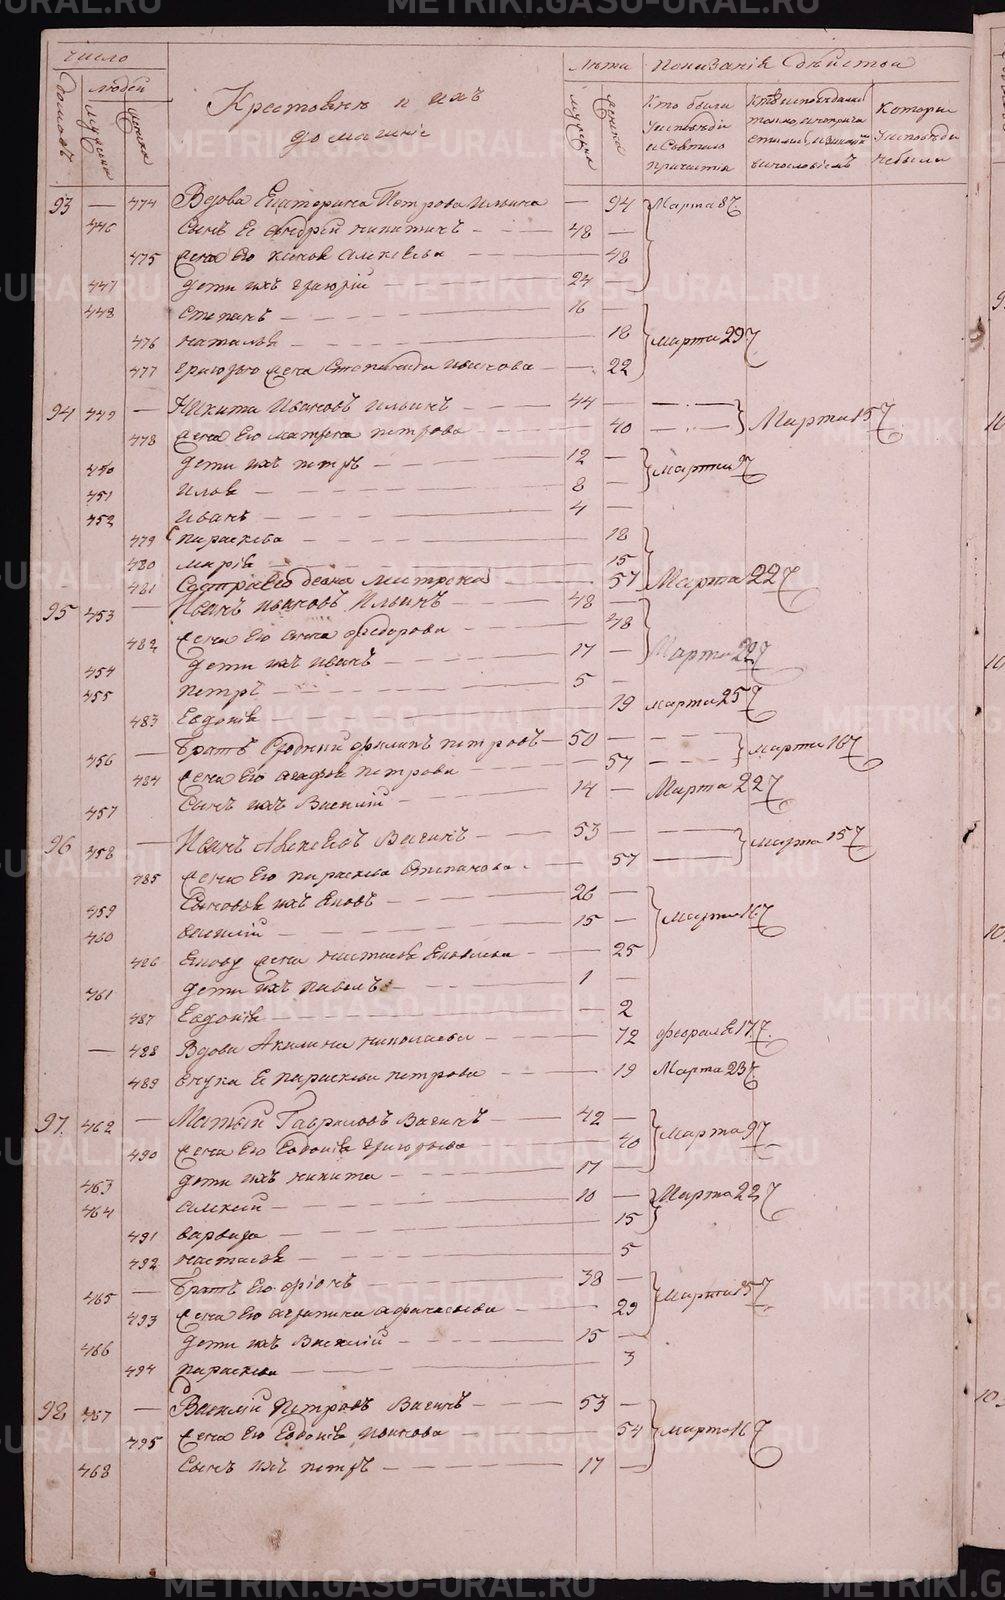 Число
Лѣта Показанiе дѣйства
Людей
домовъ
мужеска
женска
Крестьянѣ и ихъ
домашнiе
мужеска
женска
Кто были
у исповѣди
и Святаго
причастiя
Которы
у исповѣди
не были
93 — 474 Вдова Екатерина Петрова Ильина — 94 Марта 8
446 Сынъ Ее Андрей Никитинъ 48 —
475 жена Его Алексѣева 48
447 дети ихъ Григорiй 24
448 Степанъ 16 —
476 Наталья 18 Марта 29
477 Григорью жена Степанида Иванова — 22
94 449 — Никита Ивановъ Ильинъ 44 — Марта 15
478 жена Его Матрена Петрова 40
450 дети ихъ Петръ 12 — Марта 9
451 Илья 8 —
452 Иванъ 4 —
479 Параскева 18
480 Марiя 15
481 Сестра Его девка Матрена 57 Марта 22
95 453 — Иванъ Ивановъ Ильинъ 48
482 жена Его Анна Федорова 48
454 дети ихъ Иванъ 17 — Марта 22
455 Петръ 5 —
483 Евдокiя 19 Марта 25
456 — Братъ Сродный Филипъ Петровъ — 50 — Марта 16
484 жена Его Агафья Петрова 57
457 Сынъ ихъ Василiй 14 — Марта 22
96 458 — Иванъ Алексѣевъ Вагинъ 53 — Марта 15
485 жена Его Параскева Степанова 57
459 Сыновья ихъ Яковъ 26 —
460 Василiй 15 — Марта 16
486 Якову жена Настасья Яковлева — 25
461 дети ихъ Павелъ 1 —
487 Евдокiя — 2
— 488 Вдова Акилина Николаева 72 Февраля 17
489 внука Ее Параскева Петрова 19 Марта 23
97 462 — Матвей Гавриловъ Вагинъ 42 — Марта 9
490 жена Его Евдокiя Григорьева 40
463 дети ихъ Никита 17 —
464 Алексей 10 — Марта 22
491 Варвара 15
492 Настасья 5
465 — Братъ Его 38 — Марта 15
493 жена Его Агрипина Афанасьева 29
466 дети ихъ Василiй 15 —
494 Параскева 3
98 467 — Василiй Петровъ Вагинъ 53 —
495 жена Его Евдокiя Иванова 54 Марта 16
468 Сынъ ихъ Петръ 17 —
METRIKI.GASO-URAL.RU